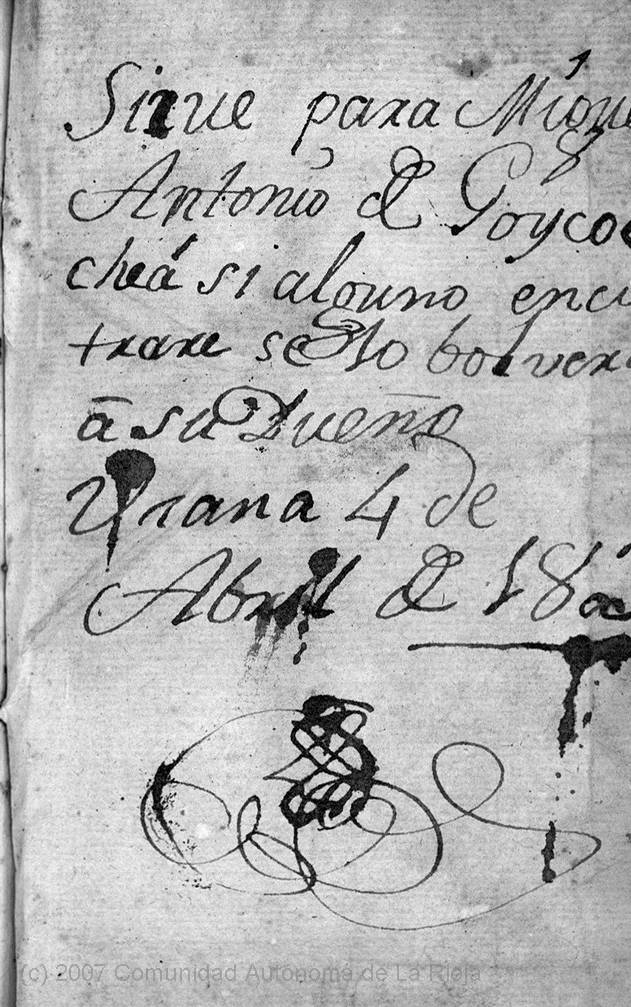 Sirve para Migue
Antonio de Goycoe
cheá si alguno encu
trare se lo bolver
ā su Dueño
Urana 4 de
Abril de 18
(c) 2007 Comunidad Autónoma de La Rioja